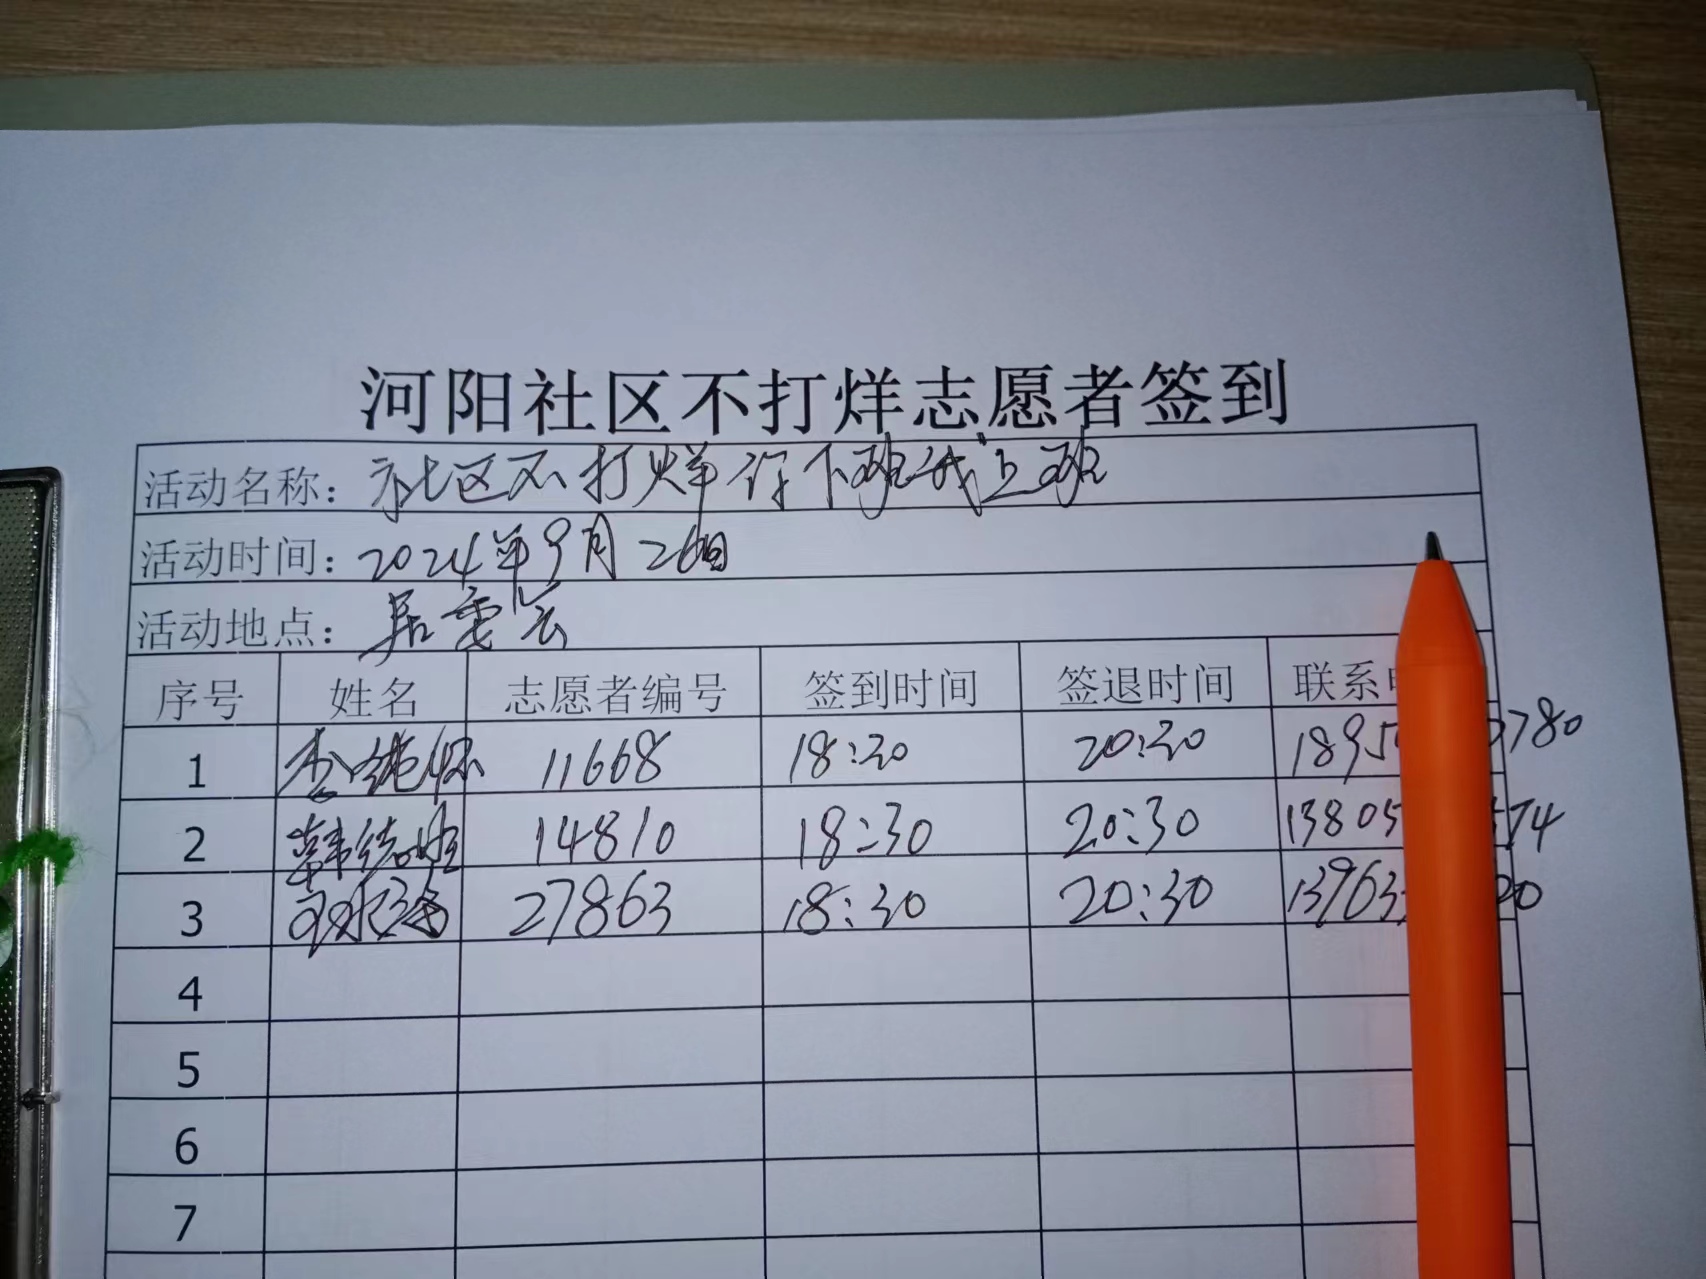 河阳社区不打烊志愿者签到
活动名称：社区不打烊 你下班我上班
活动时间：2024年9月26日
活动地点：居委会
序号 姓名 志愿者编号 签到时间 签退时间 联系
1 11668 18:30 20:30 1895 780
2 韩 14810 18:30 20:30 13805 574
3 27863 18:30 20:30 13963 20
4
5
6
7